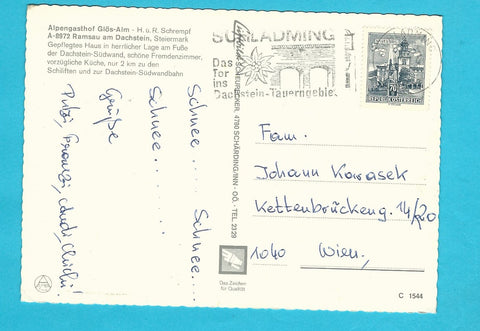 Alpengasthof Glös-Alm - H. u. R. Schrempf
A-8972 Ramsau am Dachstein, Steiermark
Gepflegtes Haus in herrlicher Lage am Fuße
der Dachstein-Südwand, schöne Fremdenzimmer,
vorzügliche Küche, nur 2 km zu den
Schiliften und zur Dachstein-Südwandbahn
Schnee.... Schnee....
Schnee.....
Grüße
Putzi, Franzi,
4780 SCHÄRDING/INN - OÖ. TEL. 2328
SCHLADMING
Das
Tor
ins
Dachstein-Tauerngebiet
REPUBLIK ÖSTERREICH
Fam.
Johann Karasek
Kettenbrückeng. 14/20
1040 Wien,
Das Zeichen
für Qualität
C 1544